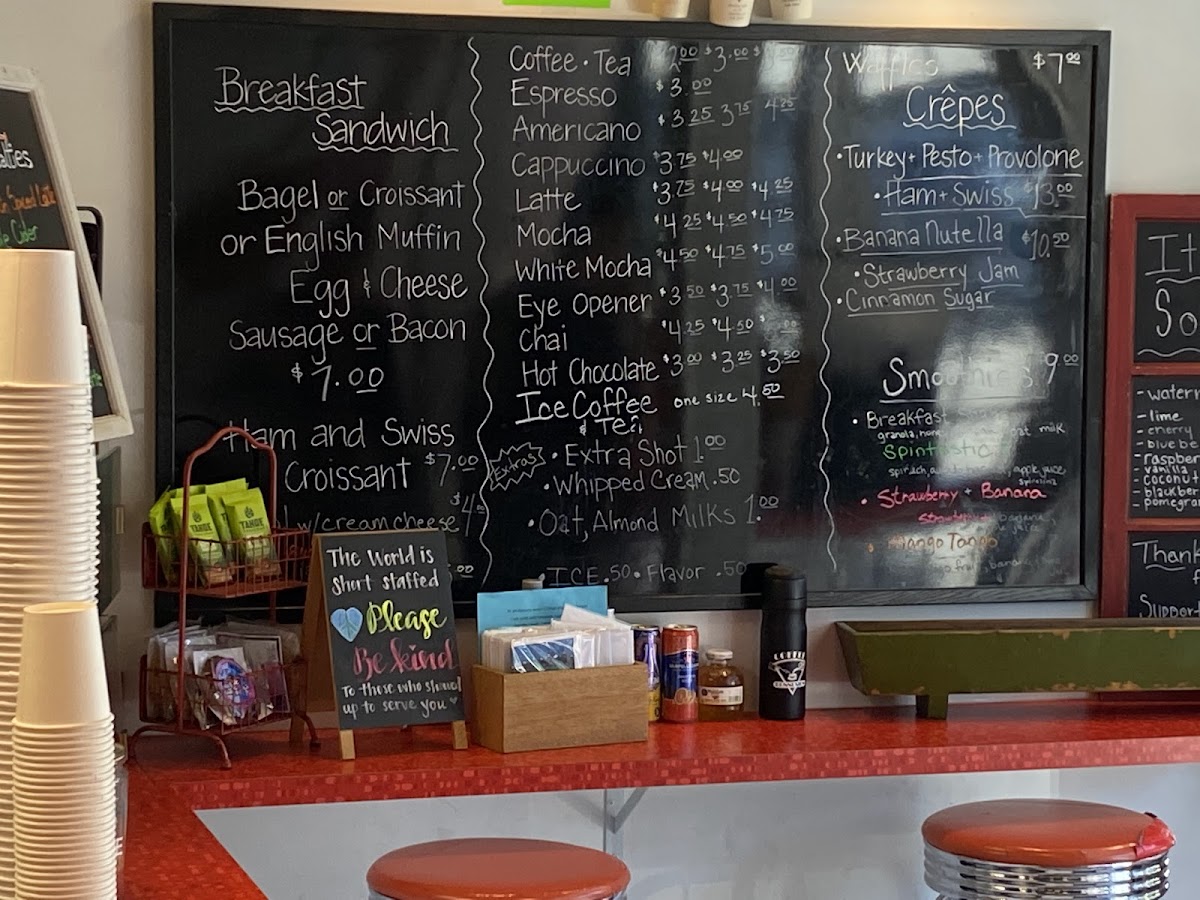 Breakfast
Sandwich
Bagel or Croissant
or English Muffin
Egg & Cheese
Sausage or Bacon
$7.00
Ham and Swiss
Croissant $7.00
w/creamcheese
Coffee • Tea 2.00 $3.00
Espresso $3.00
Americano $3.25 3.75 4.25
Cappuccino $3.75 $4.00
Latte $3.75 $4.00 $4.25
Mocha $4.25 $4.50 $4.75
White Mocha $4.50 $4.75 $5.00
Eye Opener $3.50 $3.75 $4.00
Chai $4.25 $4.50
Hot Chocolate $3.00 $3.25 $3.50
Ice Coffee one size 4.50
& Tea
Extras
• Extra Shot 1.00
• Whipped Cream .50
• Oat, Almond Milks 1.00
ICE .50 • Flavor .50
Waffles $7.00
Crêpes
• Turkey + Pesto + Provolone
• Ham + Swiss $13.00
• Banana Nutella $10.50
• Strawberry Jam
• Cinnamon Sugar
Smoothies 9.00
• Breakfast
granola, oat milk
Spintastic
apple juice
spirulina
• Strawberry + Banana
Mango Tango
Spiced Latte
Cider
It
So
- lime
- cherry
- vanilla
- coconut
Thank
Support
TAHOE
TAHOE
The World is
Short staffed
Please
Be kind
To those who showed
up to serve you
COFFEE